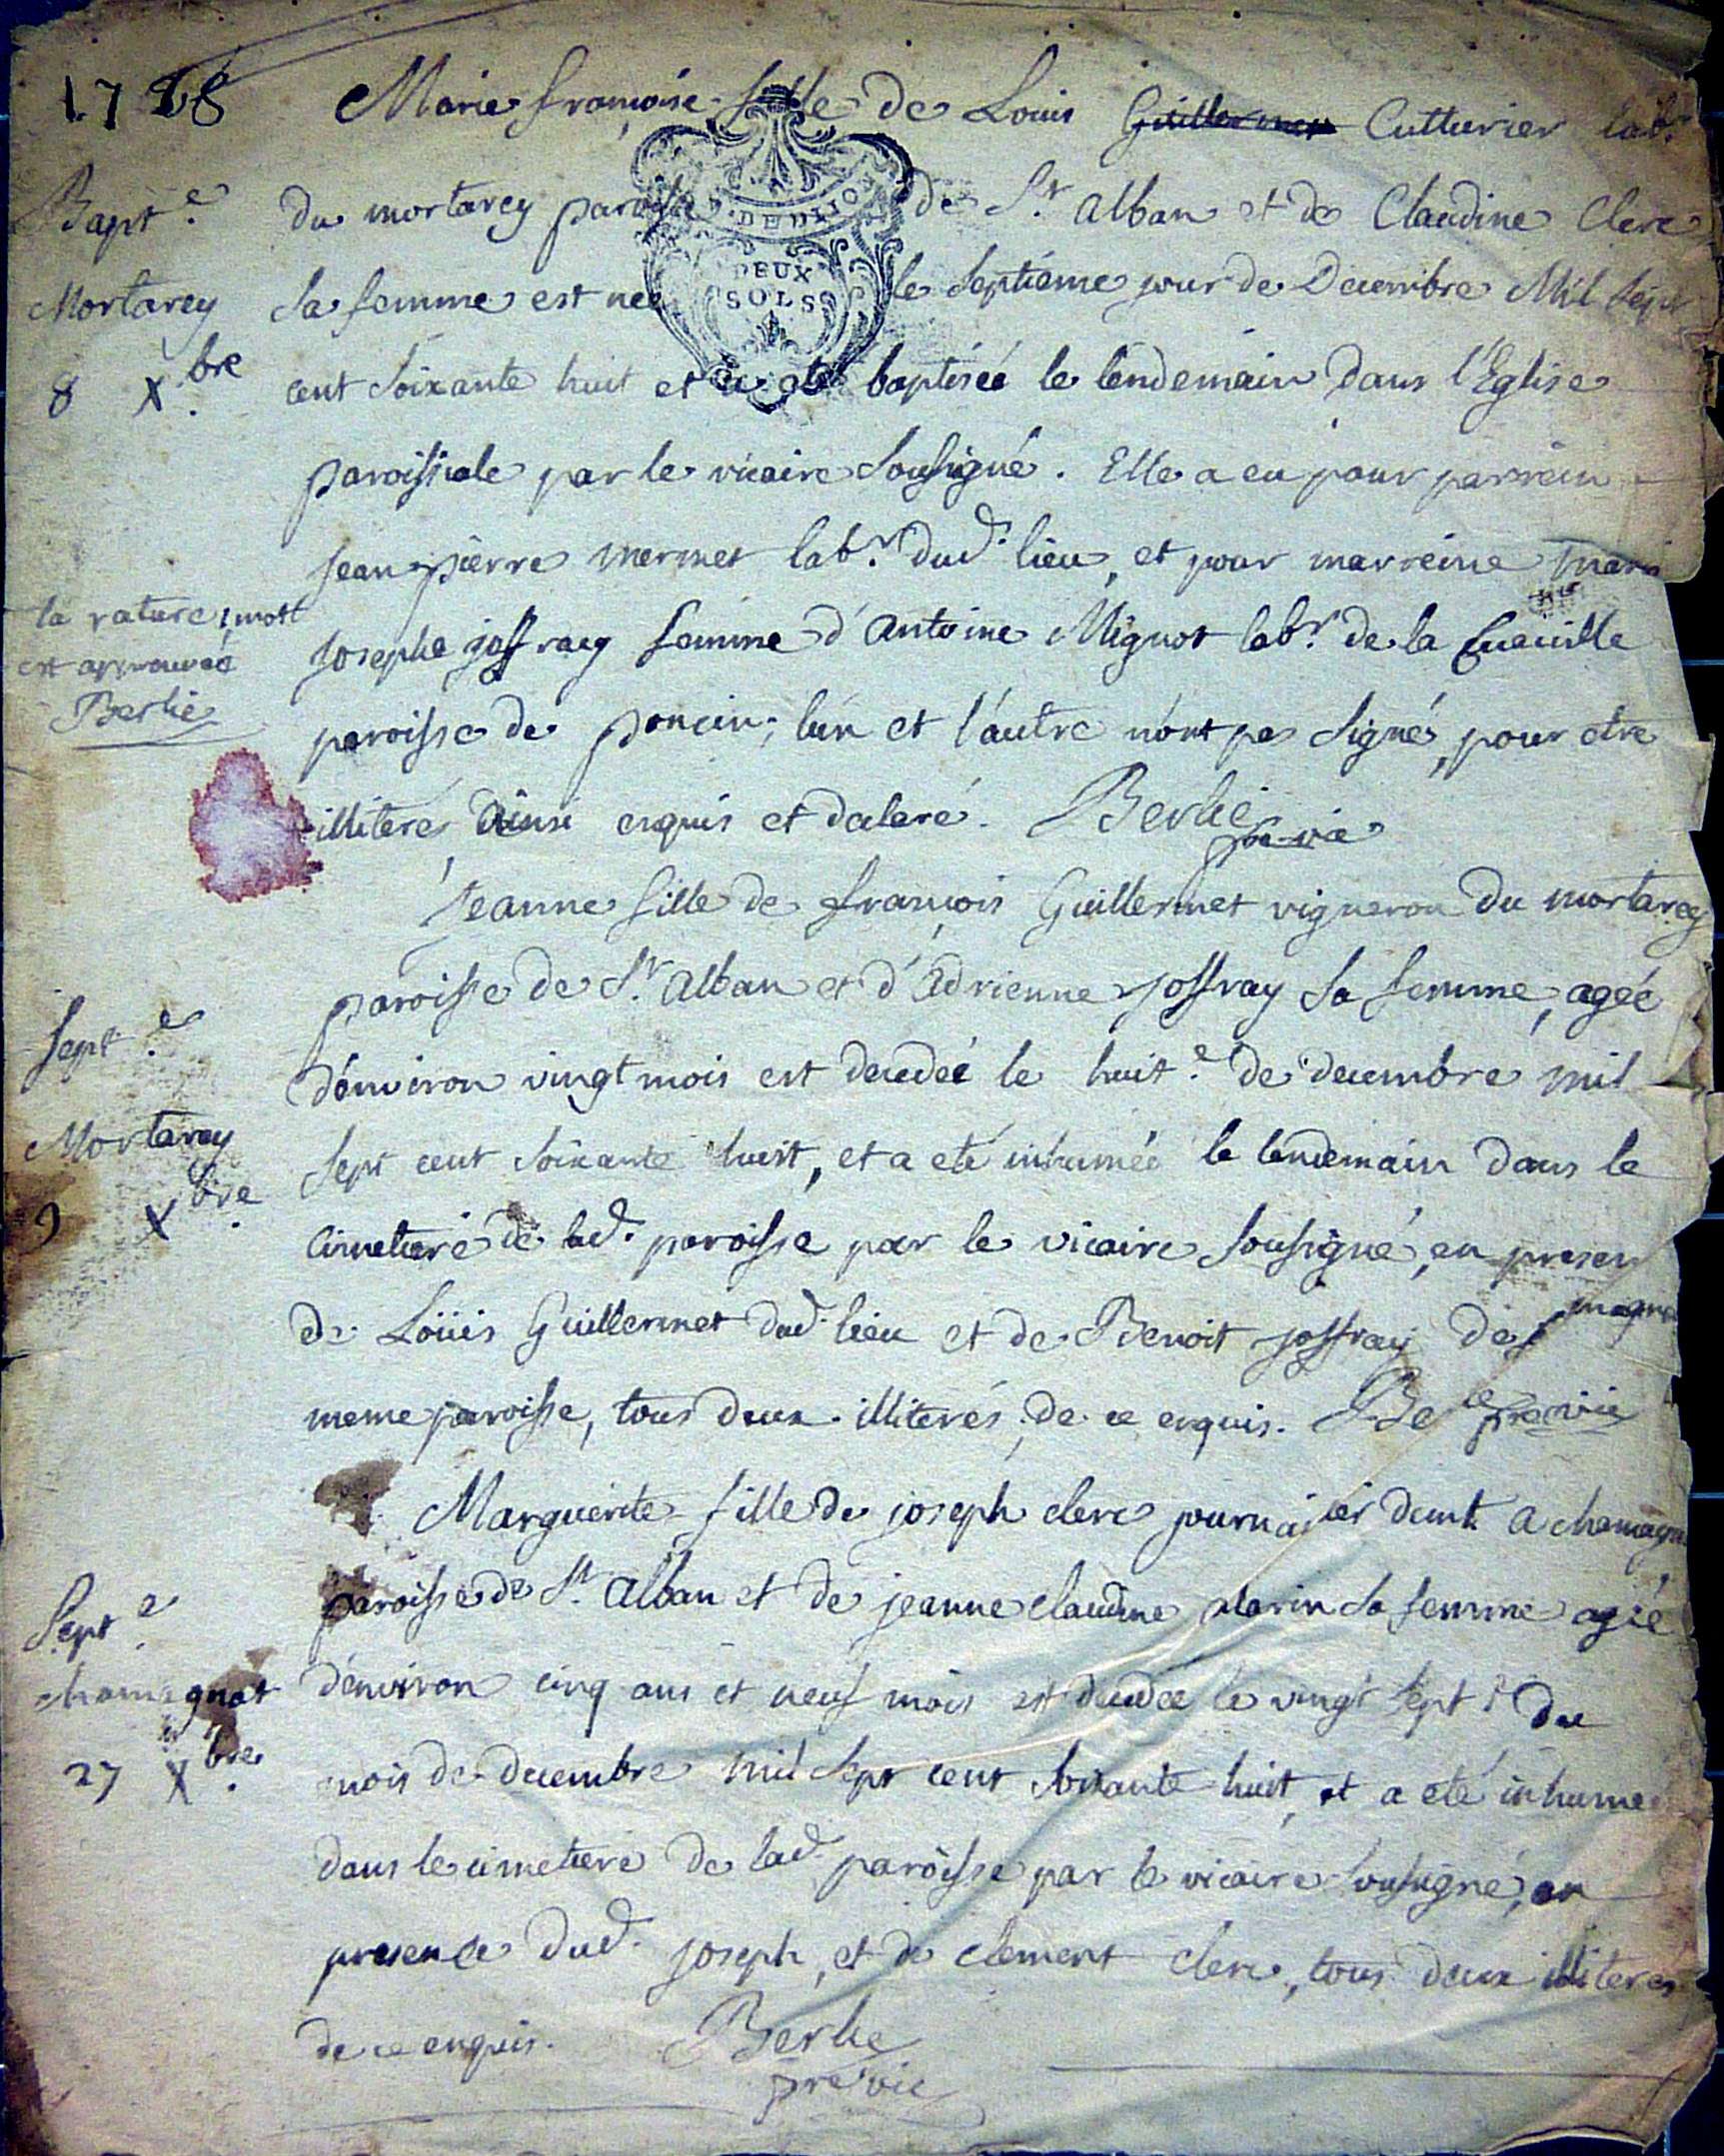 1768
Marie françoise fille de Louis Guillermet Cutturier lab.r
Bapt.e
du mortarey paroisse de St. alban et de Claudine Clerc
DE DIJON
DEUX
SOLS
Mortarey
sa femme est née le septième jour de Decembre Mil sept
8 Xbre.
cent soixante huit et a eté baptiseé le lendemain dans l'Eglise
paroissiale par le vicaire soussigné. Elle a eu pour parrein
jean pierre mermet lab.r dud. lieu, et pour marreine mari
la rature 1 mot
est approuveé
Berlie
josephe joffray femme d'antoine Mignot lab.r de la Cueuille
paroisse de poncin; l'un et l'autre n'ont pas signé, pour etre
illiterés ainsi enquis et declaré. Berlie
pre vic
Jeanne fille de françois Guillermet vigneron du mortarey
paroisse de St. alban et d'adrienne joffray sa femme, ageé
Sept.e
d'environ vingt mois est decedeé le huit.e de decembre mil
Mortarey
sept cent soixante huit, et a eté inhumeé le lendemain dans le
9 Xbre.
cimetiere de lad. paroisse par le vicaire soussigné, en presen
de Loüis Guillermet dud. lieu et de Benoit joffray de
meme paroisse, tous deux illiterés de ce enquis. Be
pre vic
Marguerite fille de joseph clerc journalier demt. a chamagn
paroisse de St. alban et de jeanne claudine marin sa femme ageé
Sept.e
chamagnat
d'environ cinq ans et neuf mois est decedeé le vingt sept.e du
27 Xbre.
mois de decembre mil sept cent soixante huit, et a eté inhumeé
dans le cimetiere de lad. paroisse par le vicaire soussigné, en
presence dud. joseph, et de clement clerc, tous deux illiterés
de ce enquis. Berlie
pre vic